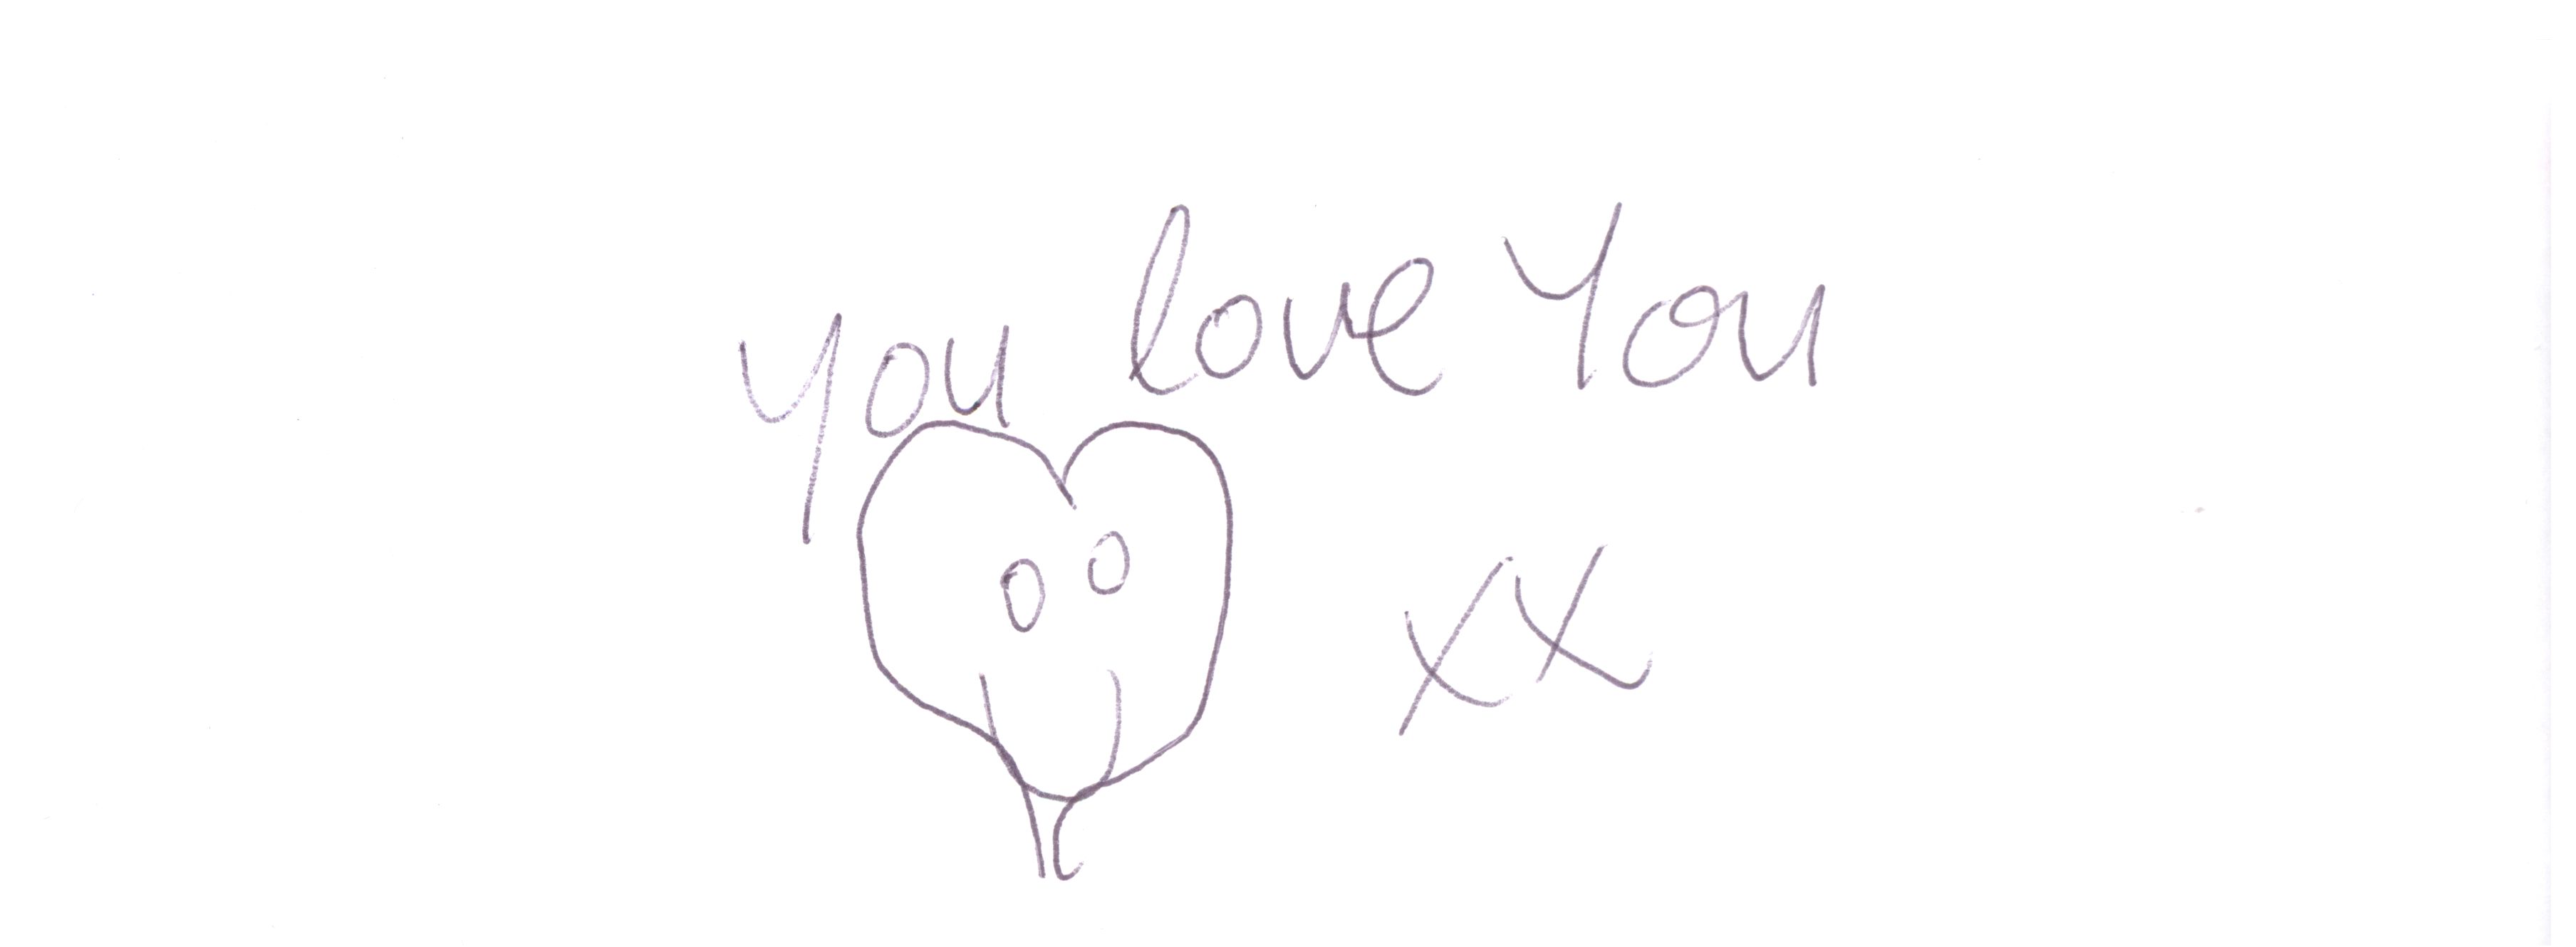 you love You
xx